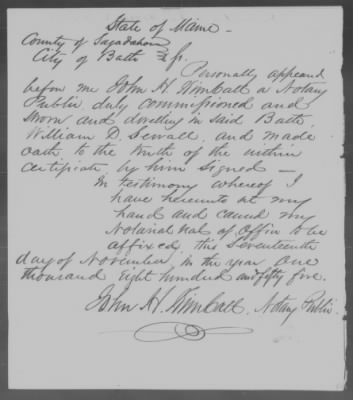 State of Maine -
County of Sagadahoc
City of Bath } ss.
Personally appeared
before me John H Kimball a Notary
Public duly commissioned and
sworn and dwelling in said Bath,
William D. Sewall, and made
oath to the truth of the within
certificate, by him signed -
In testimony whereof I
have hereunto set my
hand and caused my
Notarial seal of Office to be
affixed, the Seventeenth
day of November, in the year One
thousand Eight hundred and fifty five.
John H. Kimball, Notary Public.